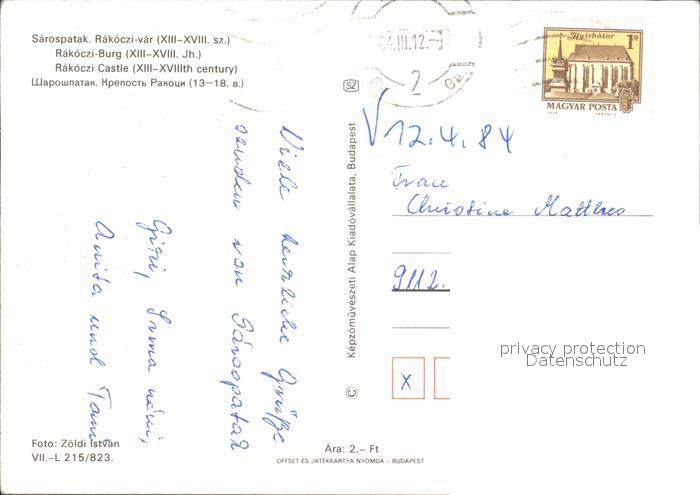 Sárospatak. Rákóczi-vár (XIII–XVIII. sz.)
Rákóczi-Burg (XIII–XVIII. Jh.)
Rákóczi Castle (XIII–XVIIIth century)
Шарошпатак. Крепость Ракоци (13–18. в.)
84.III.12.
2
Nyírbátor
1 Ft
MAGYAR POSTA
SZ
√ 12.4.84
Viele herzliche Grüße
senden von Sárospatak
Gitti, Irma néni,
Anita und Tami
Frau
Christine Matthes
9112.
x
privacy protection
Datenschutz
© Képzőművészeti Alap Kiadóvállalata, Budapest
Foto: Zöldi István
VII.–L 215/823.
Ára: 2,– Ft
OFFSET ÉS JÁTÉKKÁRTYA NYOMDA – BUDAPEST